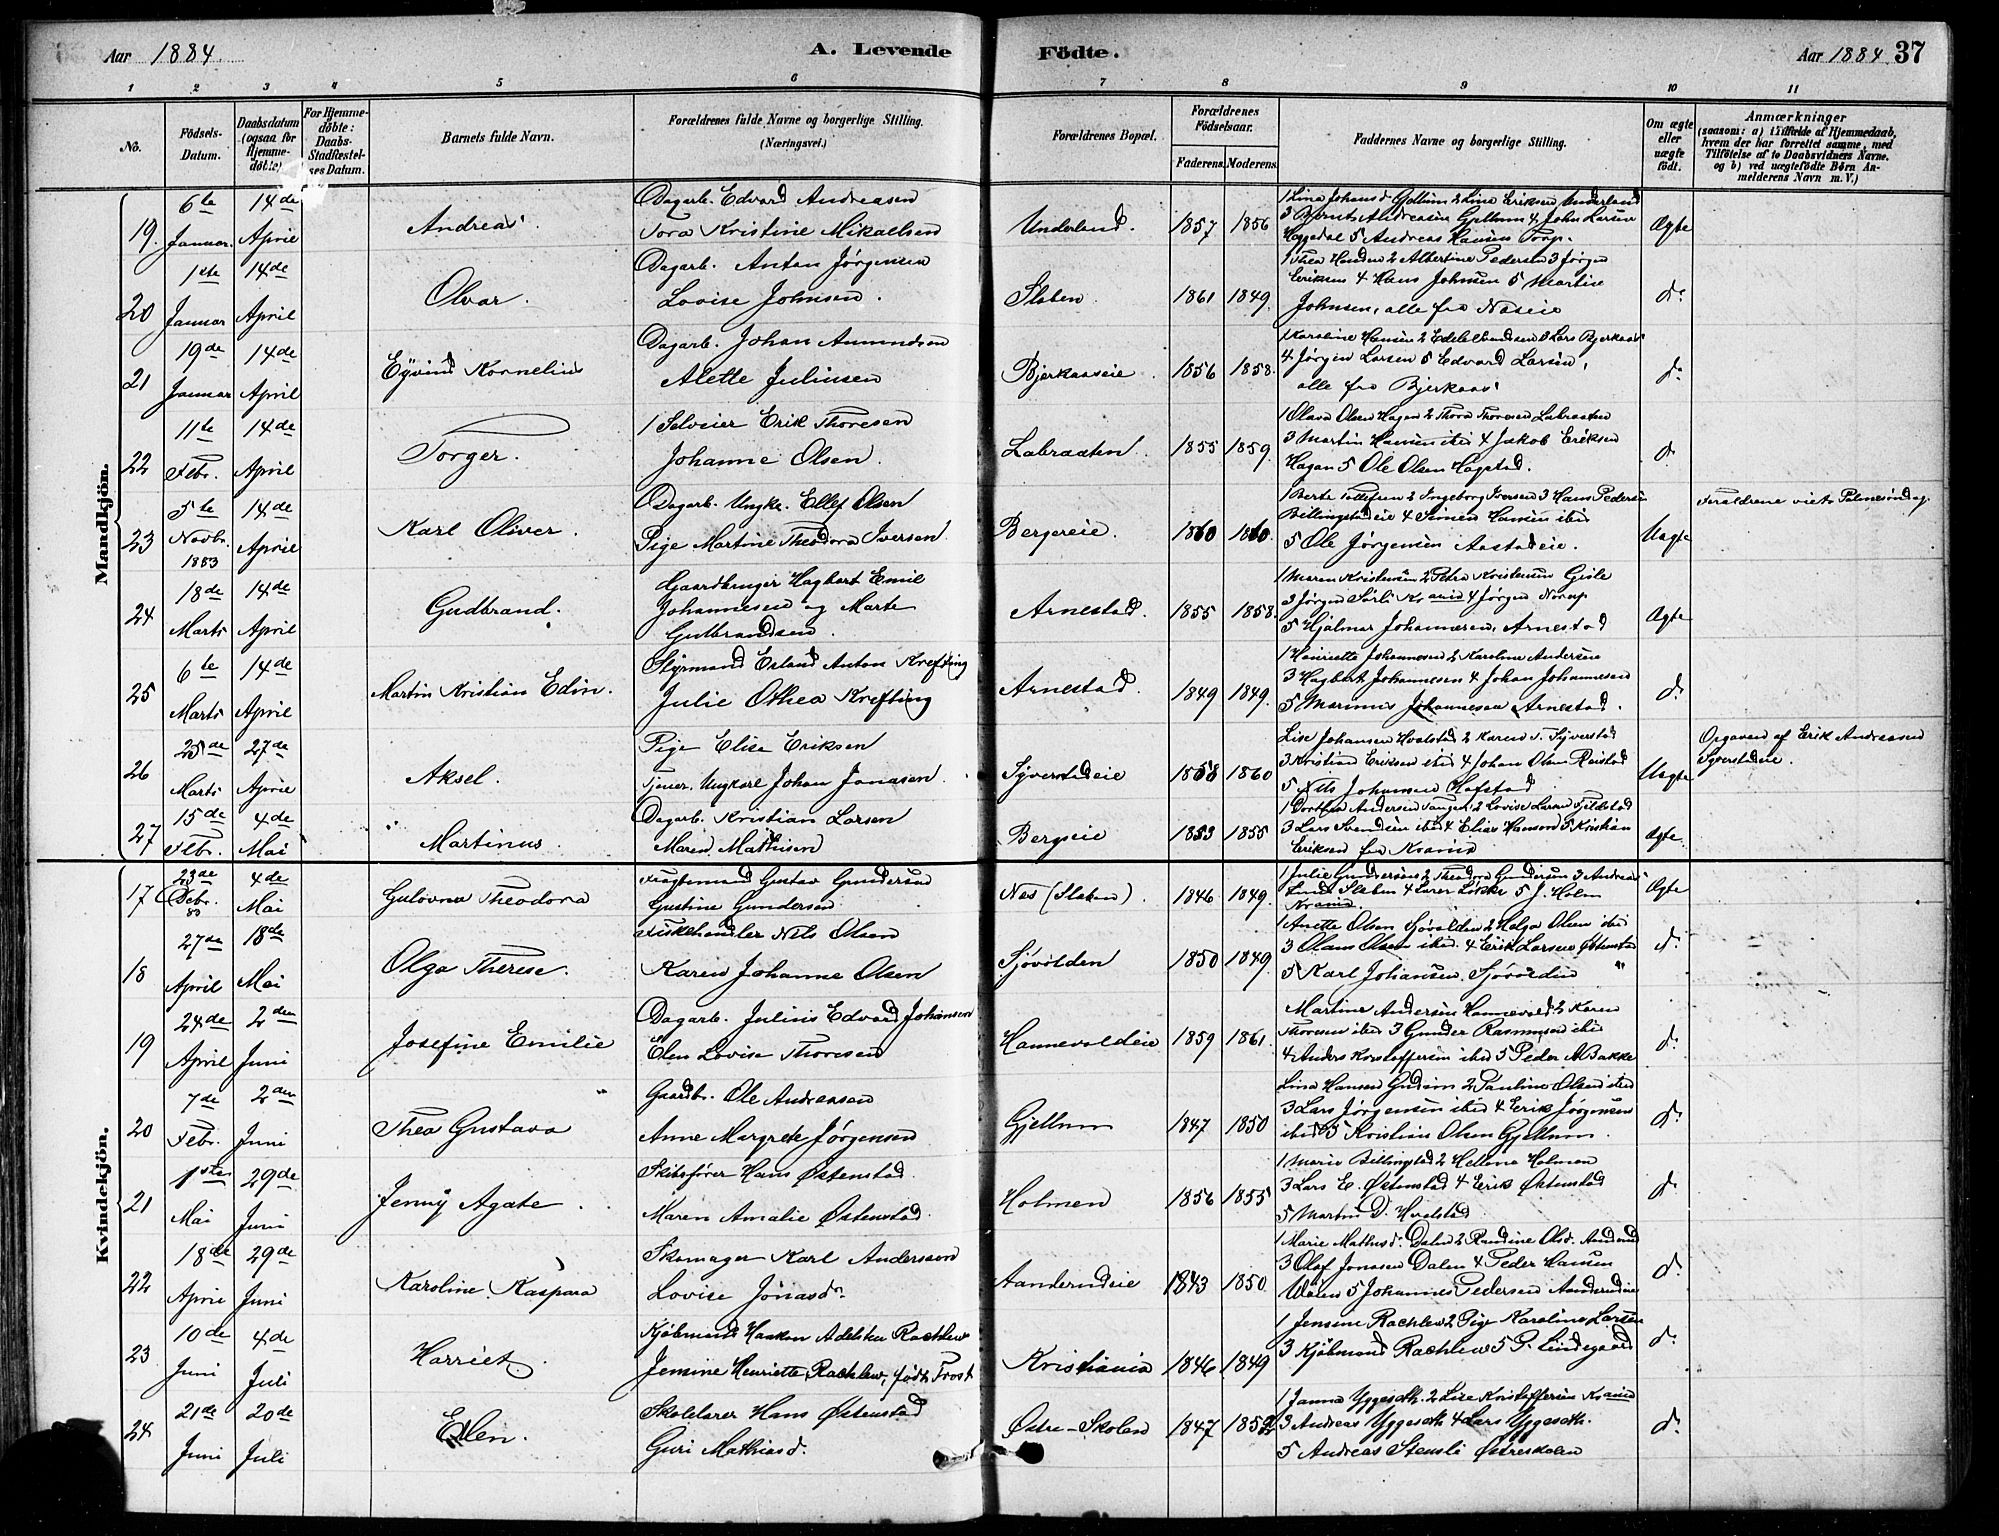 Aar 1884. A. Levende Födte. Aar 1884 37
1 2 3 4 5 6 7 8 9 10 11
No.
Födsels-Datum.
Daabsdatum (ogsaa for Hjemmedöbte)
For Hjemmedöbte: Daabs-Stadfæstelses Datum.
Barnets fulde Navn.
Forældrenes fulde Navne og borgerlige Stilling. (Næringsvei.)
Forældrenes Bopæl.
Forældrenes Födselsaar.
Faderens. Moderens.
Faddernes Navne og borgerlige Stilling.
Om ægte eller uægte födt.
Anmærkninger
(saasom: a) i Tilfælde af Hjemmedaab, hvem der har forrettet samme, med Tilföielse af to Daabsvidners Navne. og b) ved uægtefödte Börn Anmelderens Navn m. V.)
Mandkjön.
19. 6te Januar. 14de April Andreas.
Dagarb. Edvard Andreasen
Tora Kristine Mikaelsen
Underland. 1857 1856
3 Bernt Andreasen Gjellum 4 John Larsen
5 Andreas Hansen Torp.
Ægte
20 1ste Januar 14de April Olvar.
Dagarb. Anton Jørgensen
Lovise Johnsen.
Slaben. 1861 1849.
2 Albertine Pedersen 3 Jörgen
Eriksen 4 Hans Johnsen 5 Martin
Johnsen, alle fra
do
21 19de Januar 14de April Eyvind Kornelius
Dagarb. Johan Amundsen
Alette Juliusen
Bjerkaaseie. 1856 1858.
1 Karoline Hansen 3 Lars Bjerkaas
4 Jørgen Larsen 5 Edvard Larsen,
alle fra Bjerkaas
do
22 11te Febr. 14de April Torger.
1 Selveier Erik Thoresen
Johanne Olsen.
Labraaten. 1855 1859.
1 Olava Olsen Hagen 2 Thora Thoresen Labraaten
3 Martin Hansen ibid 4 Jakob Eriksen
Hagan 5 Ole Olsen Hogstad.
do
23 5te Novbr. 1883 14de April Karl Oliver.
Dagarb. Ungk. Ellef Olsen
Pige Martine Theodora Iversen.
Bergereie. 1860 1860.
1 Berte Tollefsen 2 Ingeborg Iversen 3 Hans Pedersen
Billingstadeie 4 Simen Hansen ibid
5 Ole Jørgensen Aastadeie.
Uægte
Foraldrene viet Palmesöndag.
24 18de Marts 14de April Gudbrand.
Gaardbruger Hagbart Emil
Johannesen og Marte
Gulbrandsen.
Arnestad. 1855 1858.
1 Maren Kristensen 2 Petra Kristensen Gisle
3 Jørgen 4 Jørgen
5 Hjalmar Johannesen, Arnestad
Ægte
25 6te Marts 14de April Martin Kristian Edin.
Styrmand Erland Anton Krefting
Julie Othea Krefting
Arnestad. 1849 1849.
1 Henriette Johannesen 2 Karoline Andersen
3 Hagbart Johannesen 4 Johan Johannesen
5 Marinus Johannesen Arnestad.
do
26 25de Marts 27de April Aksel.
Pige Elise Eriksen
Tjener, Ungkarl Johan Jonasen.
Syverstadeie 1858 1860
Lise Johansen Hvalstad 2 Karen Syverstad
3 Kristian Eriksen ibid 4 Johan Olsen Reistad
5 Nils Johansen Hofstad
Uægte
Opgaven af Erik Andreassen
Syverstadeie.
27 15de Febr. 4de Mai Martinus.
Dagarb. Kristian Larsen
Maren Mathisen
Bergseie 1853 1855
1 Dorthea Andersen 2 Lovise Larsen
3 Lars Svendsen ibid 4 Elias Hansen 5 Kristian
Eriksen fra Krania
Ægte.
Kvindekjön.
17 23de Debr. 83 4de Mai Gulovna Theodora
Fragtemand Gustav Gundersen
Gustine Gundersen
Nes (Slaben). 1846 1849.
1 Julie Gundersens 2 Theodora Gundersen 3 Andreas
Slaben 4 Løkke 5 J. Holm
Krania.
Ægte
18 27de April 18de Mai Olga Therese.
Fiskehandler Nils Olsen
Karen Johanne Olsen
Sjøvolden 1850 1849.
1 Anette Olsen Sjøvolden 2 Helga Olsen ibid
3 Olaus Olsen ibid. 4 Erik Larsen Østenstad
5 Karl Johansen, Sjøvolden
do
19 24de April 2den Juni Josefine Emilie
Dagarb. Julius Edvard Johansen
Elen Lovise Thoresen
Hanevoldeie 1859 1861.
Martine Andersen Hannevold 2 Karen
Thoresen ibid 3 Gunder Rasmussen ibid
4 Anders Kristoffersen ibid 5 Peder A Bakke
do
20 7de Febr. 2den Juni Thea Gustava
Gaardbr. Ole Andreasen
Anne Margrete Jørgensen
Gjellum 1847 1850
Lina Hansen 2 Pauline Olsen ibid
3 Lars Jørgensen ibid 4 Erik Jørgensen
ibid 5 Kristian Olsen Gjellum.
do
21 1ste Mai 29de Juni Jenny Agate
Skibsfører Hans Østenstad
Maren Amalie Østenstad.
Holmen 1856 1855
1 Marie Billingstad 2 Hellene Holmen
3 Lars E. Østenstad 4 Erik Østenstad
5 Martin D. Hvalstad
do
22 18de April 29de Juni Karoline Kaspara
Skomager Karl Anderssen
Lovise Jonasdr.
Aanderudeie 1843 1850
1 Marie Mathisd. Dalen 2 Randine Olsd. Aanderud
3 Olof Jonasen Dalen 4 Peder Hansen
5 Johannes Pedersen Aanderudeie
do
23 10de Juni 4de Juli Harriet.
Kjøbmand Haakon Adelsten Rachlew
Jensine Henriette Rachlew, født Frost
Kristiania 1846 1849
1 Jensine Rachlew 2 Pige Karoline Larsen
3 Kjøbmand Rachlew 5 P. Lindegaard
do
24 21de Juni 20de Juli Elen.
Skolelærer Hans Østenstad
Guri Mathiasd.
Østre-Skolen 1847 1852
1 Janna Yggeseth. 2 Lise Kristoffersen Krania
3 Andreas Yggeseth 4 Lars Yggeseth.
5 Andreas Stensli Østreskolen
do